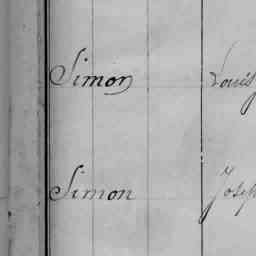 Simon Louis
Simon Joseph